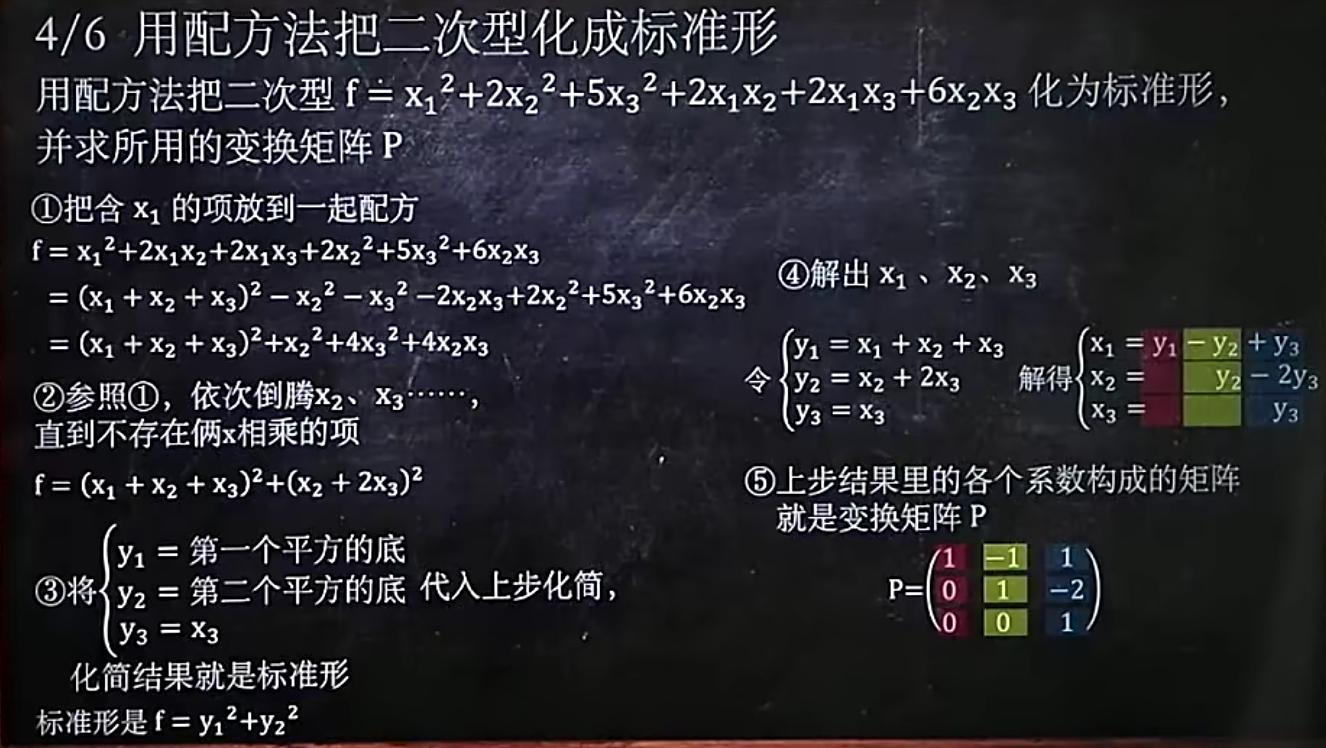 4/6 用配方法把二次型化成标准形
用配方法把二次型 f = x₁²+2x₂²+5x₃²+2x₁x₂+2x₁x₃+6x₂x₃ 化为标准形，
并求所用的变换矩阵 P
①把含 x₁ 的项放到一起配方
f = x₁²+2x₁x₂+2x₁x₃+2x₂²+5x₃²+6x₂x₃
= (x₁ + x₂ + x₃)² − x₂² − x₃² −2x₂x₃+2x₂²+5x₃²+6x₂x₃
= (x₁ + x₂ + x₃)²+x₂²+4x₃²+4x₂x₃
②参照①，依次倒腾x₂、x₃……，
直到不存在俩x相乘的项
f = (x₁ + x₂ + x₃)²+(x₂ + 2x₃)²
y₁ = 第一个平方的底
③将 y₂ = 第二个平方的底 代入上步化简，
y₃ = x₃
化简结果就是标准形
标准形是 f = y₁²+y₂²
④解出 x₁ 、x₂、x₃
y₁ = x₁ + x₂ + x₃
令 y₂ = x₂ + 2x₃
y₃ = x₃
x₁ = y₁ − y₂ + y₃
解得 x₂ = y₂ − 2y₃
x₃ = y₃
⑤上步结果里的各个系数构成的矩阵
就是变换矩阵 P
1 −1 1
P= 0 1 −2
0 0 1